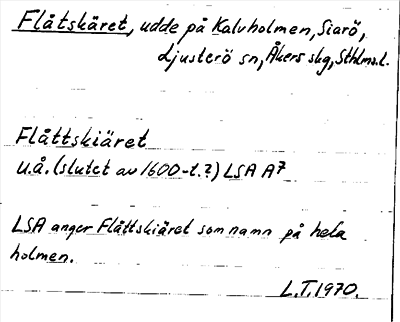 Flåtskäret, udde på Kalvholmen, Siarö,
Ljusterö sn, Åkers skg, Sthlms l.
Flåttskiäret
u.å. (slutet av 1600-t.?) LSA A7
LSA anger Flåttskiäret som namn på hela
holmen.
L.T. 1970.